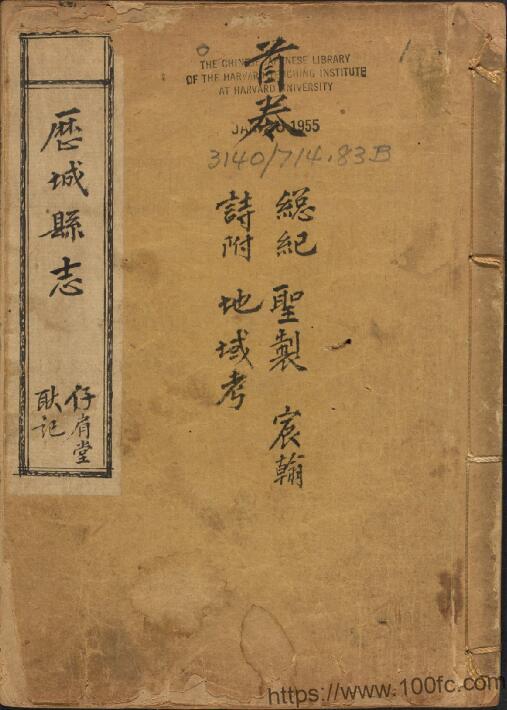 首卷
THE CHINESE-JAPANESE LIBRARY
OF THE HARVARD-YENCHING INSTITUTE
AT HARVARD UNIVERSITY
1955
3140/714.83B
總紀 聖製 宸翰
詩附 地域考
歷城縣志
仔肩堂
耿記
https://www.100fc.com